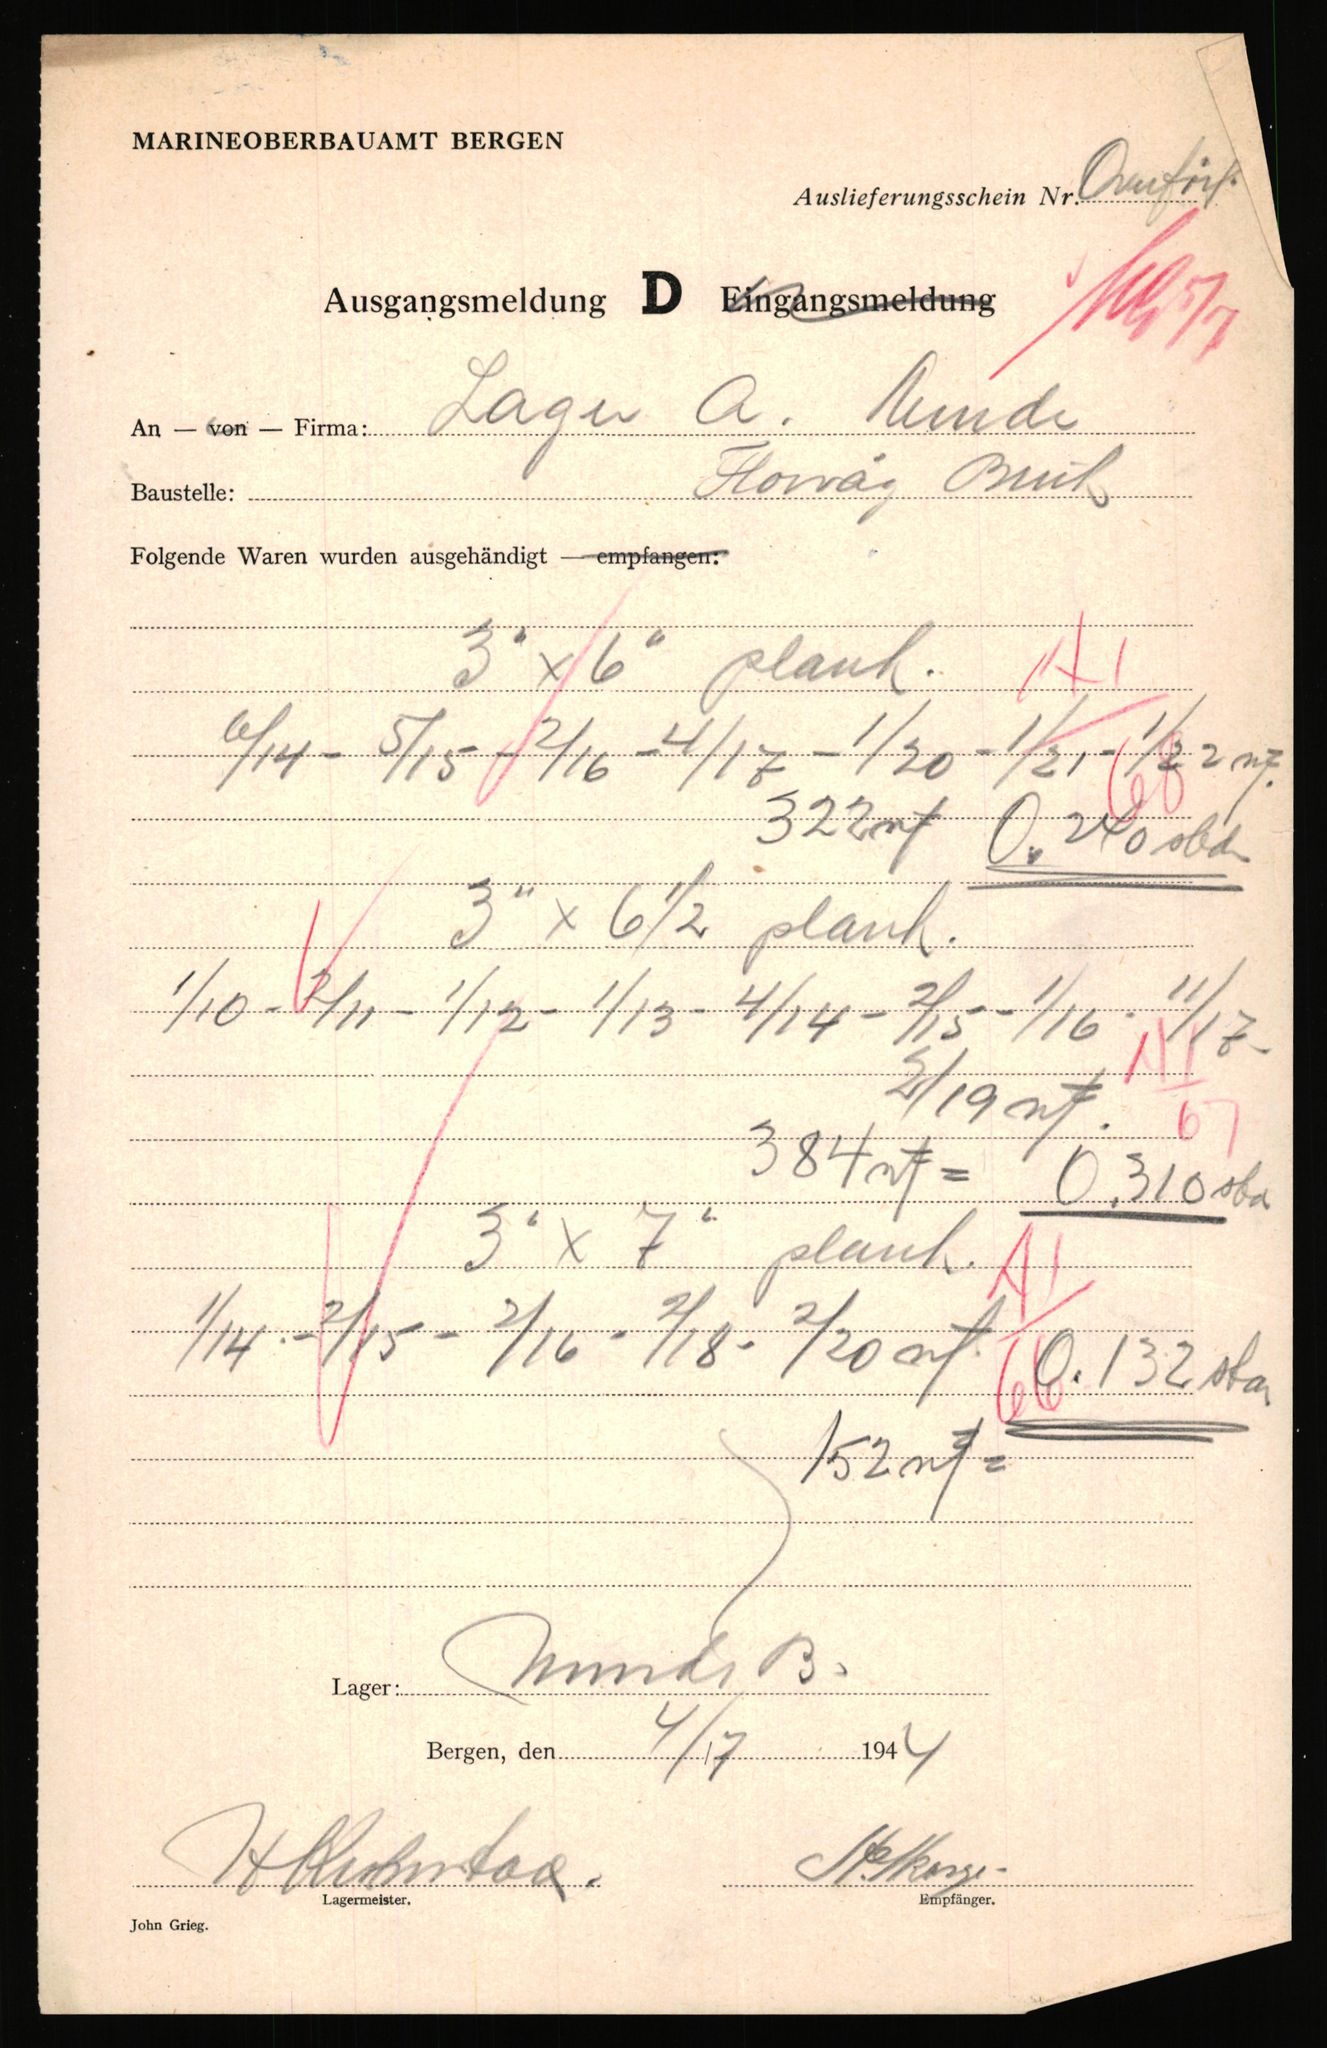 MARINEOBERBAUAMT BERGEN
Auslieferungsschein Nr. Overfört.
Ausgangsmeldung D Eingangsmeldung
5/7
An — von — Firma: Lager A. Munde
Baustelle: Florvåg Bruk
Folgende Waren wurden ausgehändigt — empfangen:
3" x 6" plank. A1
6/14 - 5/15 - 2/16 - 4/17 - 1/20 - 1/21 - 1/22 nf.
68
322 nf 0.240 stda
3" x 6 1/2 plank.
1/10 - 2/11 - 1/12 - 1/13 - 4/14 - 2/15 - 1/16 - 11/17 -
2/19 nf. A1
67
384 nf = 0.310 stda
3" x 7" plank. A1
1/14 - 2/15 - 2/16 - 2/18 - 2/20 nf.
66 0.132 stda
152 nf =
Lager: Munde B.
Bergen, den 4/7 1944
Lagermeister.
Empfänger.
John Grieg.